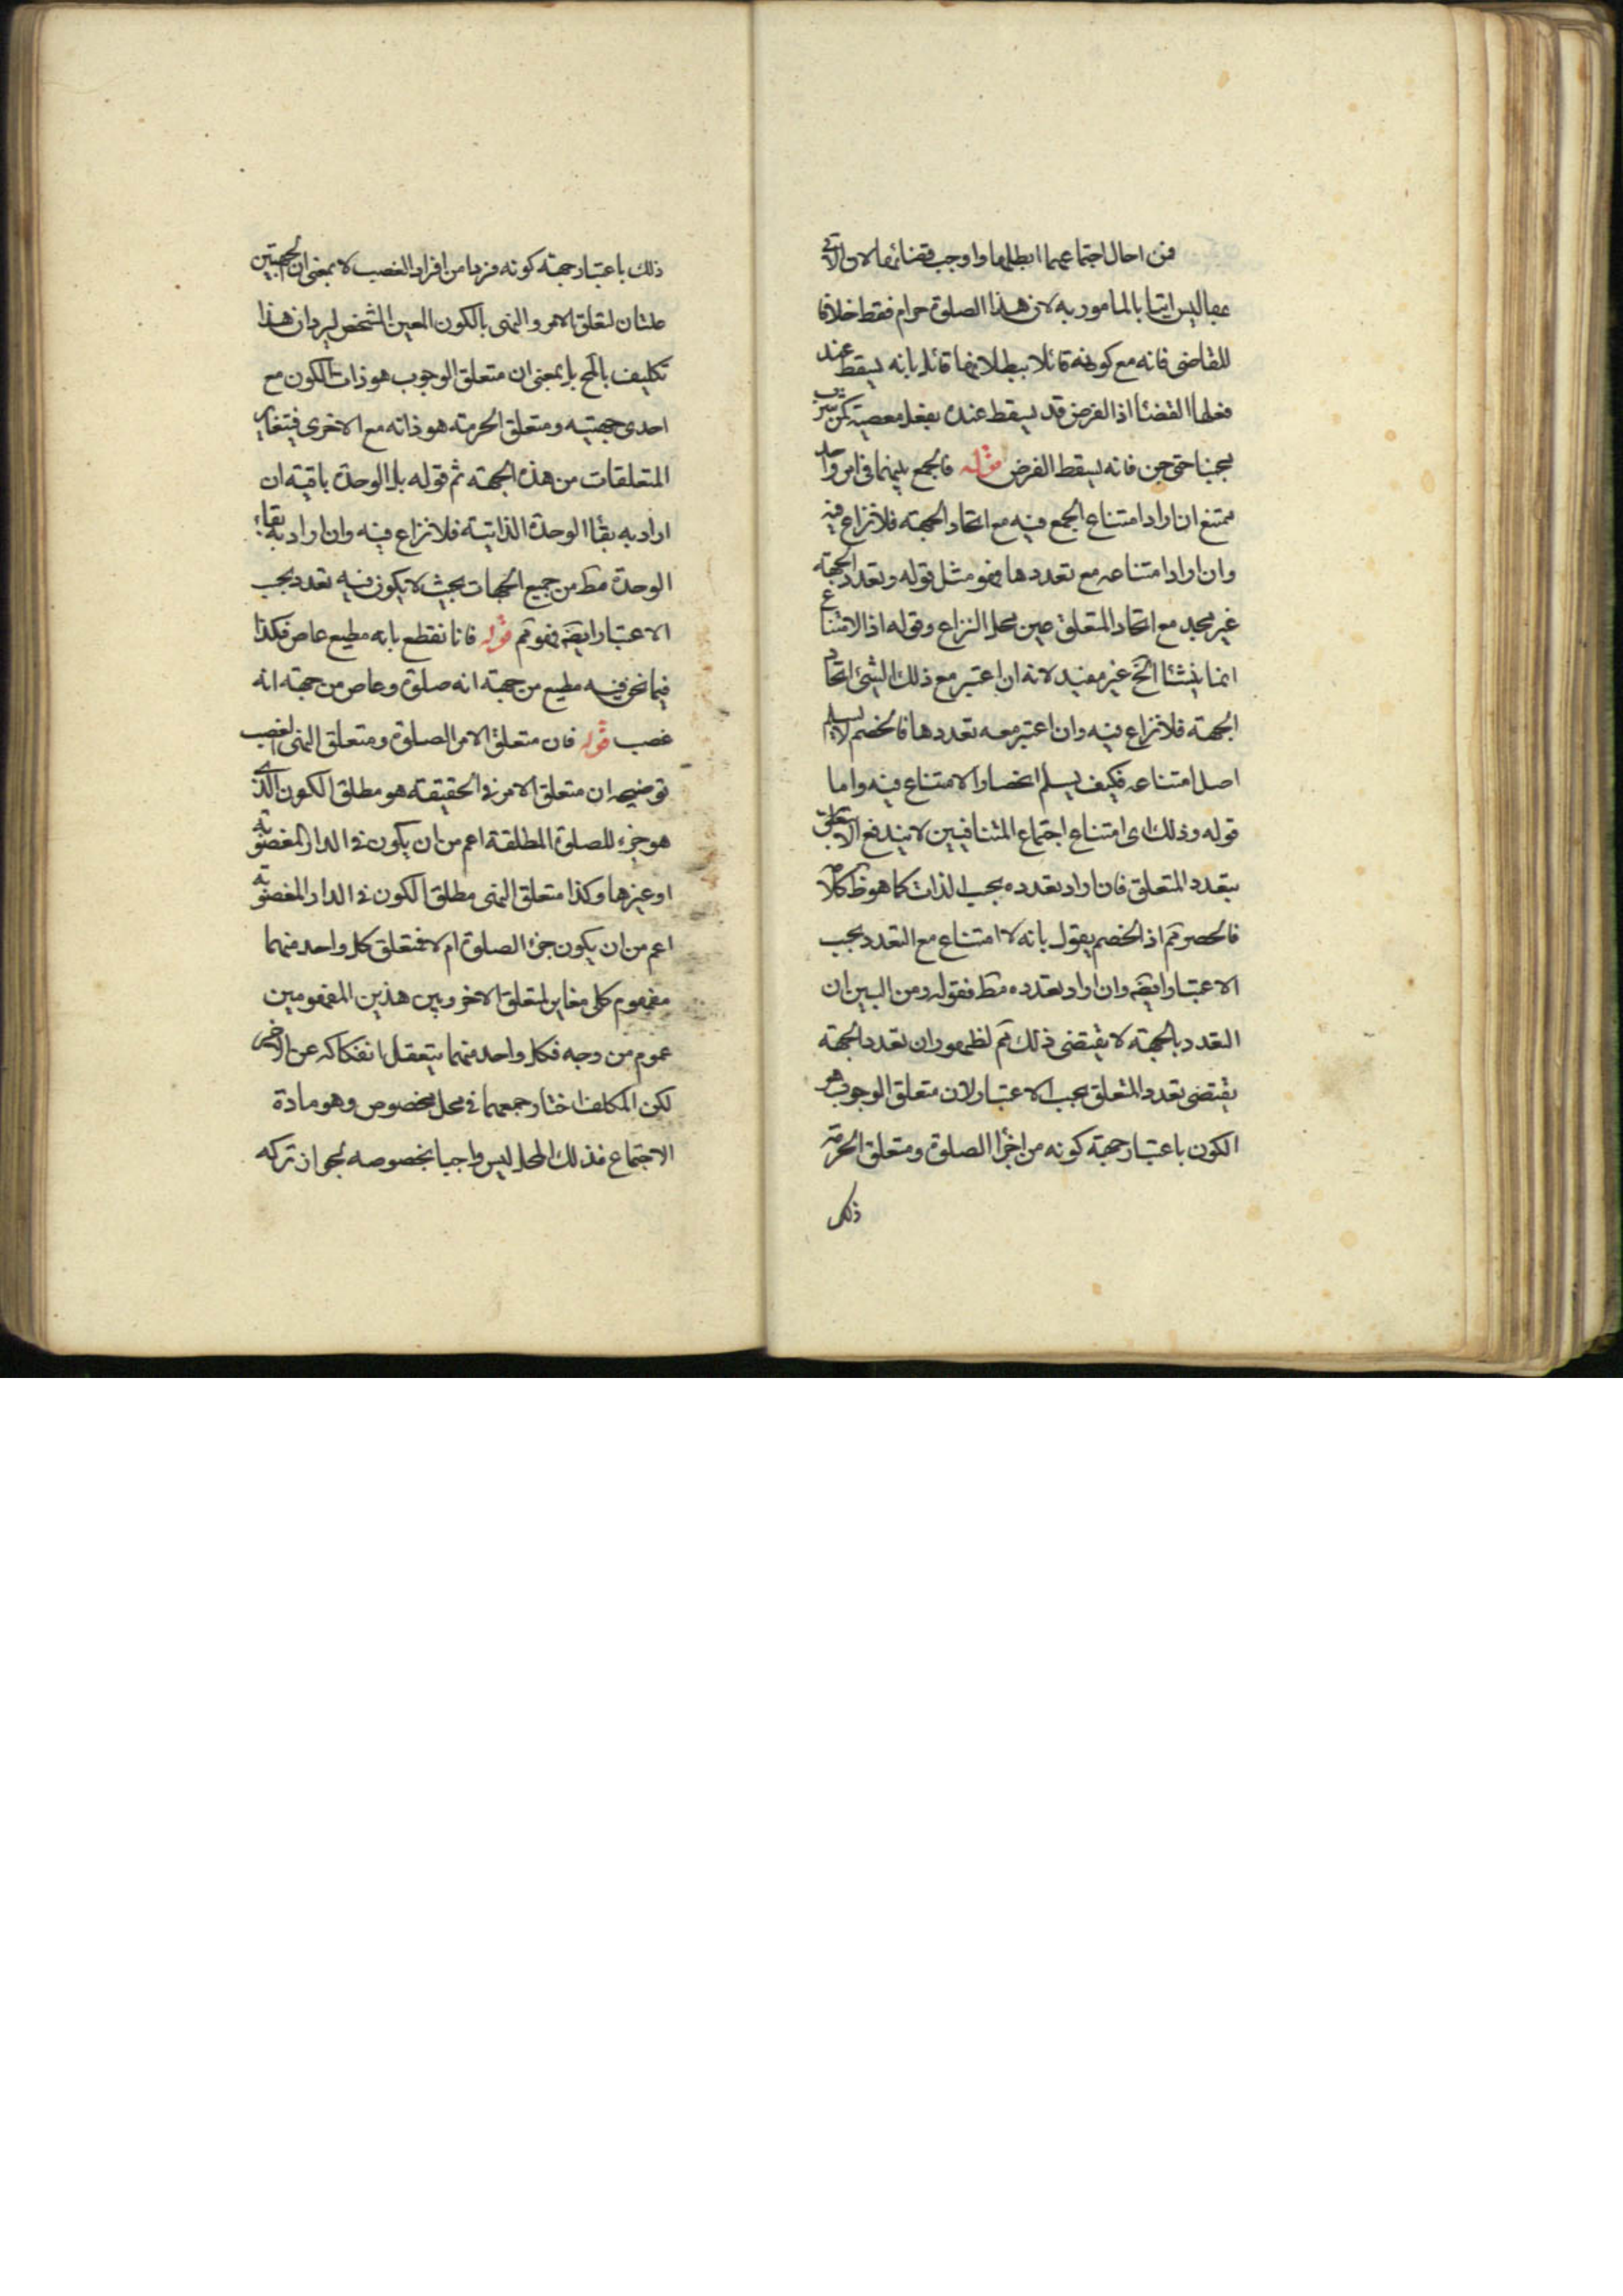 فمن احال اجتماعهما ابطلها واوجب قضائها لان الآتى
بها ليس اتيا بالمامور به لان هذا الصلوة حرام فقط خلافا
للقاضى فانه مع كونه قائلا ببطلانها قائل بانه يسقط عند
فعلها القضئا اذ الفرض قد يسقط عنده بفعل معصية كمن شرب
مجننا حتى جن فانه يسقط الفرض قوله فالجمع بينهما فى امر واحد
ممتنع ان اراد امتناع الجمع فيه مع اتحاد الجهة فلا نزاع فيه
وان اراد امتناعه مع تعددها فهو مثل قوله وتعدد الجهة
غير مجد مع اتحاد المتعلق عين محل النزاع وقوله اذ الامتناع
انما ينشئا الخ غير مفيد لانه ان اعتبر مع ذلك الشئ اتحاد
الجهة فلا نزاع فيه وان اعتبر معه تعددها فالخصم لا يسلم
اصل امتناعه فكيف يسلم انحصار الامتناع فيه واما
قوله وذلك اى امتناع اجتماع المتنافيين لا يندفع الا
بتعدد المتعلق فان اراد تعدده بحسب الذات كما هو ظ كلامه
فالحصر مم اذ الخصم يقول بانه لا امتناع مع التعدد بحسب
الاعتبار ايضه وان اراد تعدده مط فقوله ومن البين ان
التعدد بالجهة لا يقتضى ذلك مم لظهور ان تعدد الجهة
يقتضى تعدد المتعلق بحسب الاعتبار لان متعلق الوجوب هو
الكون باعتبار جهة كونه من اجزا الصلوة ومتعلق الحرمة
ذلك
ذلك باعتبار جهة كونه فردا من افراد الغصب لا بمعنى ان الجهتين
علتان لتعلق الامر والنهى بالكون المعين المشخص ليرد ان هذا
تكليف بالمح بل بمعنى ان متعلق الوجوب هو ذات الكون مع
احدى جهتيه ومتعلق الحرمة هو ذاته مع الاخرى فيتغاير
المتعلقات من هذه الجهة ثم قوله بل الوحدة باقية ان
اراد به بقئا الوحدة الذاتية فلا نزاع فيه وان اراد به بقاء
الوحدة مط من جميع الجهات بحيث لا يكون فيه تعدد بحسب
الاعتبار ايضه فهو مم قوله فانا نقطع بانه مطيع عاص فكذا
فيما نحن فيه مطيع من جهة انه صلوة وعاص من جهة انه
غصب قوله فان متعلق الامر الصلوة ومتعلق النهى الغصب
توضيحه ان متعلق الامر فى الحقيقة هو مطلق الكون الذى
هو جزء للصلوة المطلقة اعم من ان يكون فى الدار المغصوبة
او غيرها وكذا متعلق النهى مطلق الكون فى الدار المغصوبة
اعم من ان يكون جزء الصلوة ام لا فمتعلق كل واحد منهما
مفهوم كلى مغاير لمتعلق الاخر وبين هذين المفهومين
عموم من وجه فكل واحد منهما يتعقل انفكاكه عن الاخر
لكن المكلف اختار جمعهما فى محل مخصوص وهو مادة
الاجتماع فذلك المحل ليس واجبا بخصوصه لجواز تركه